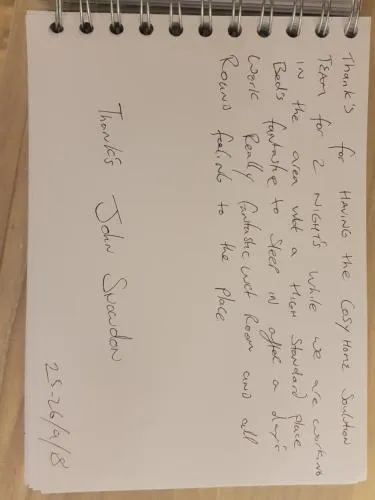 Thank's for Having the Cosy Home Soulution
Team for 2 Nights while we are working
in the area wht a High Standard place
Bed's fantastic to sleep in after a day's
work Really fantastic wet Room and all
Round feeling to the place
Thank's John Snowdon
25-26/9/8